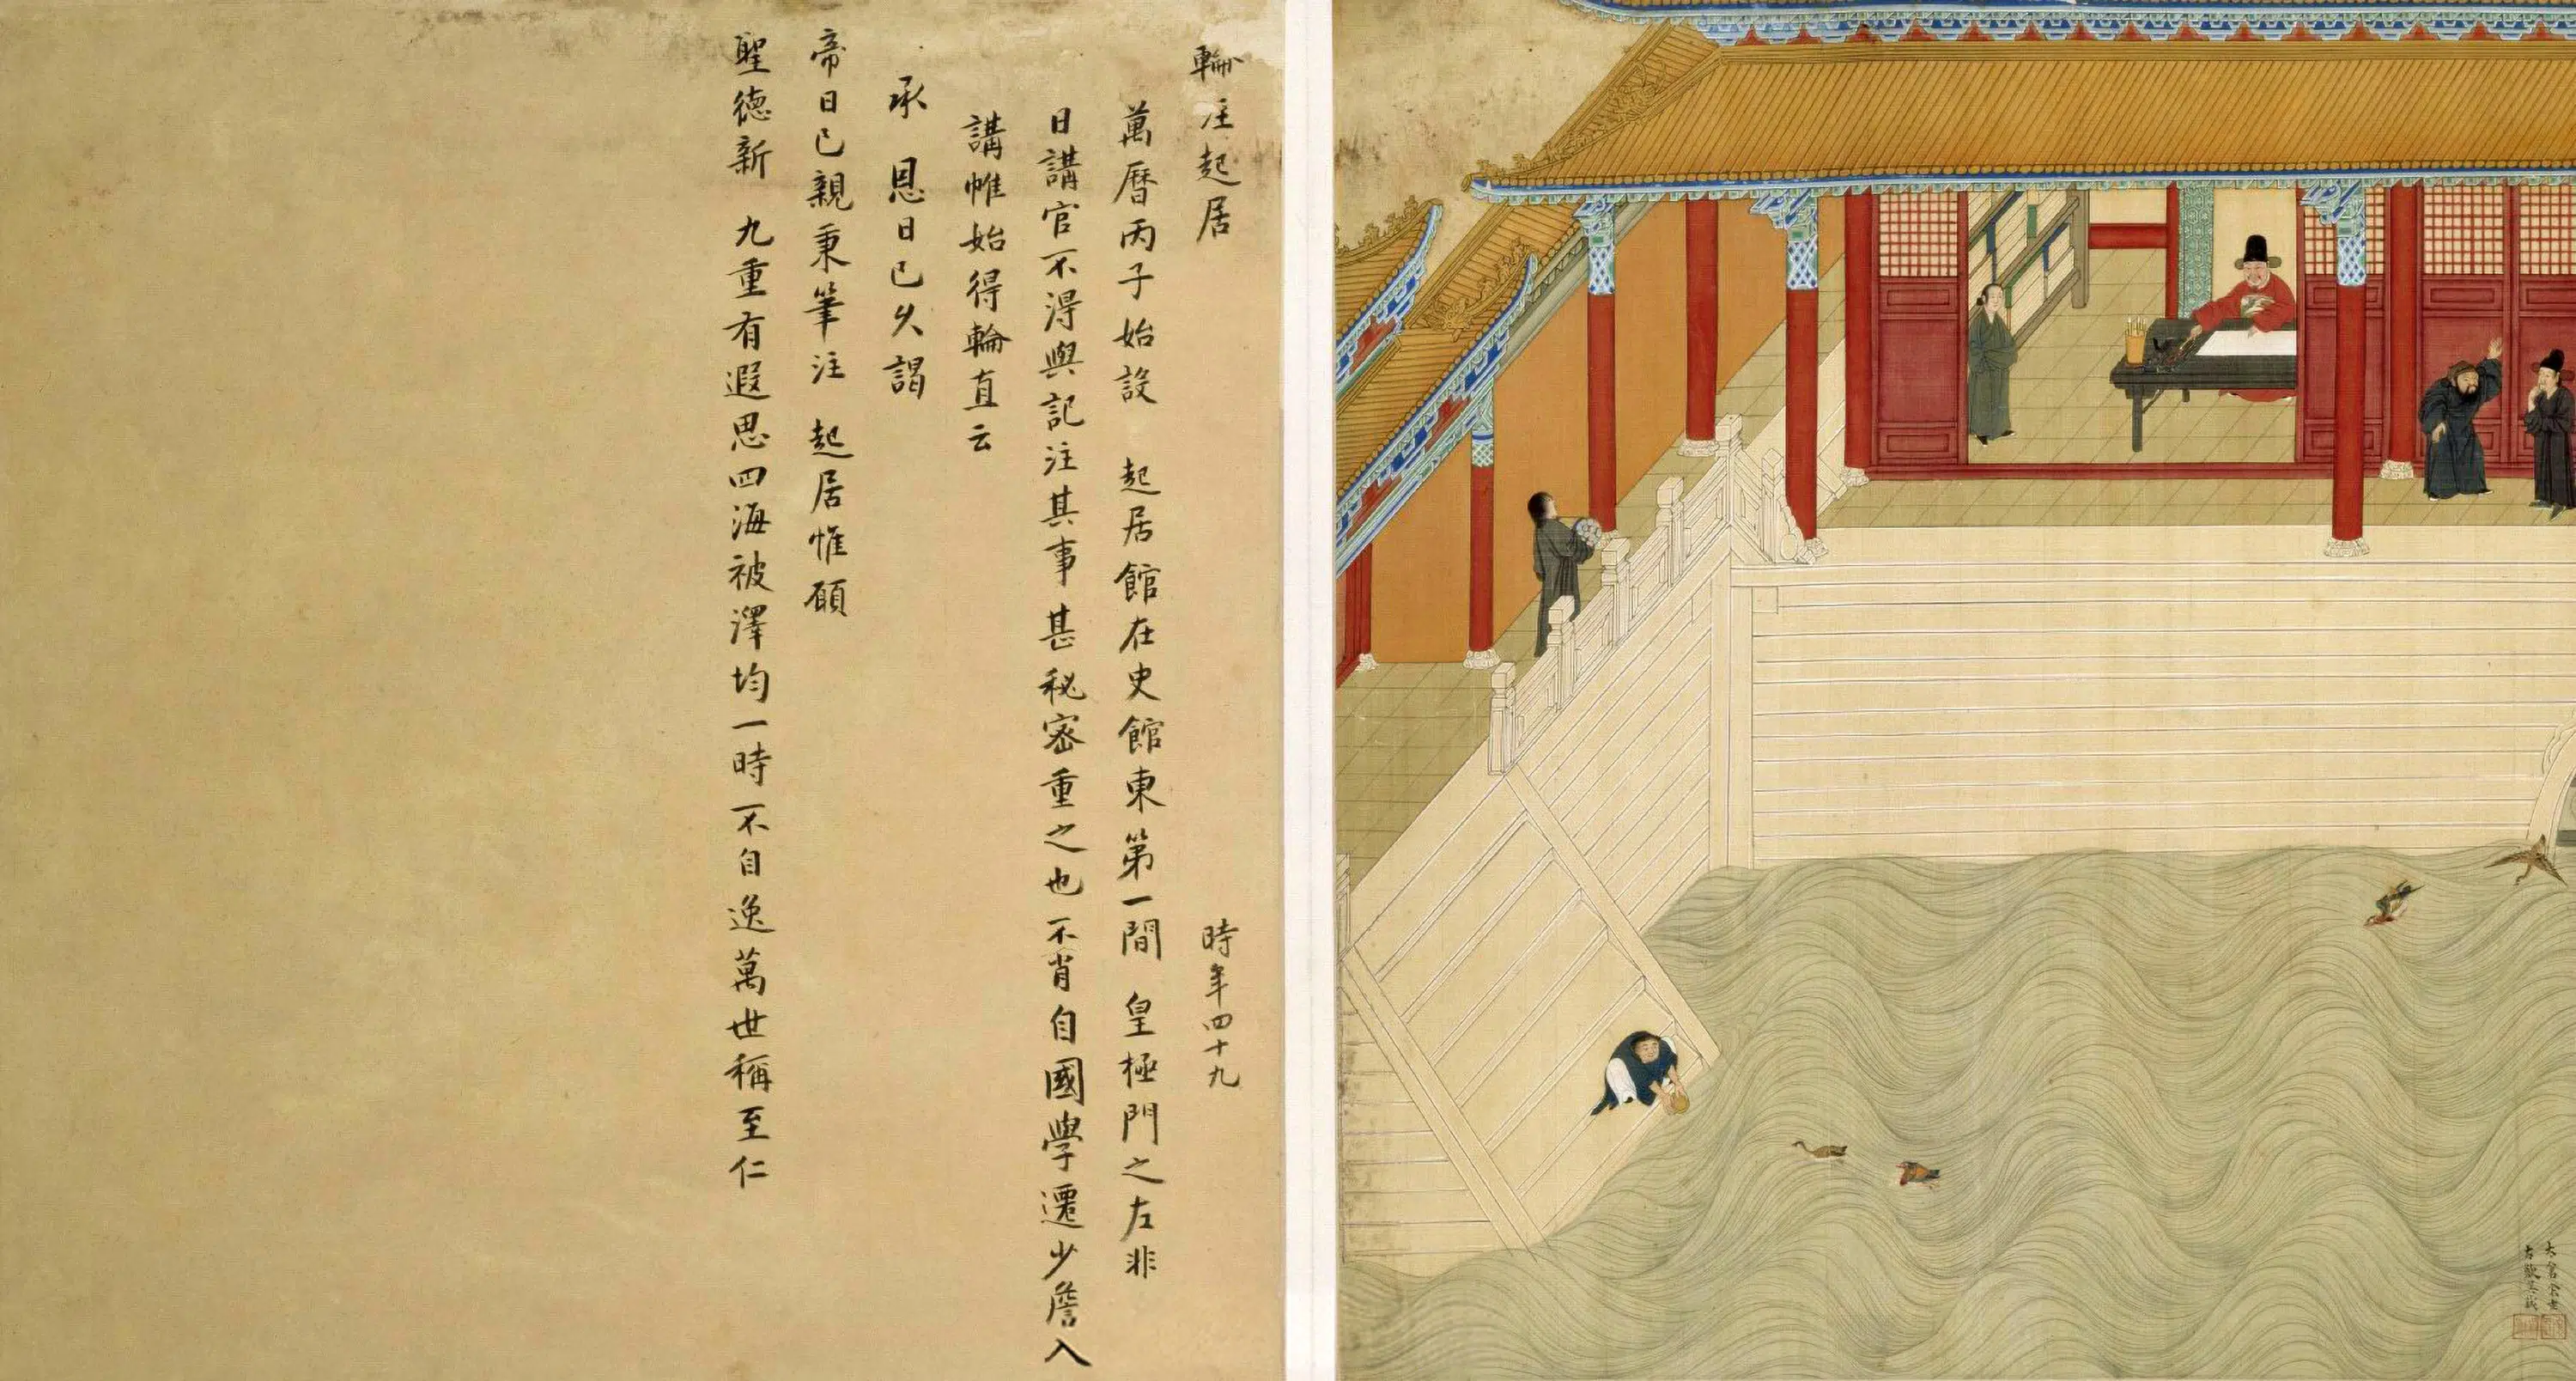 輪注起居
時年四十九
萬曆丙子始設 起居館在史館東第一間 皇極門之左非
日講官不得與記注其事甚秘密重之也不肖自國學遷少詹入
講帷始得輪直云
承 恩日已久謁
帝日已親秉筆注 起居惟願
聖德新 九重有遐思四海被澤均一時不自逸萬世稱至仁